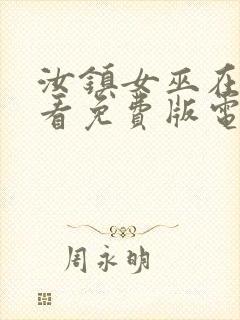 汝鎮女巫在
看免費版電
周永明